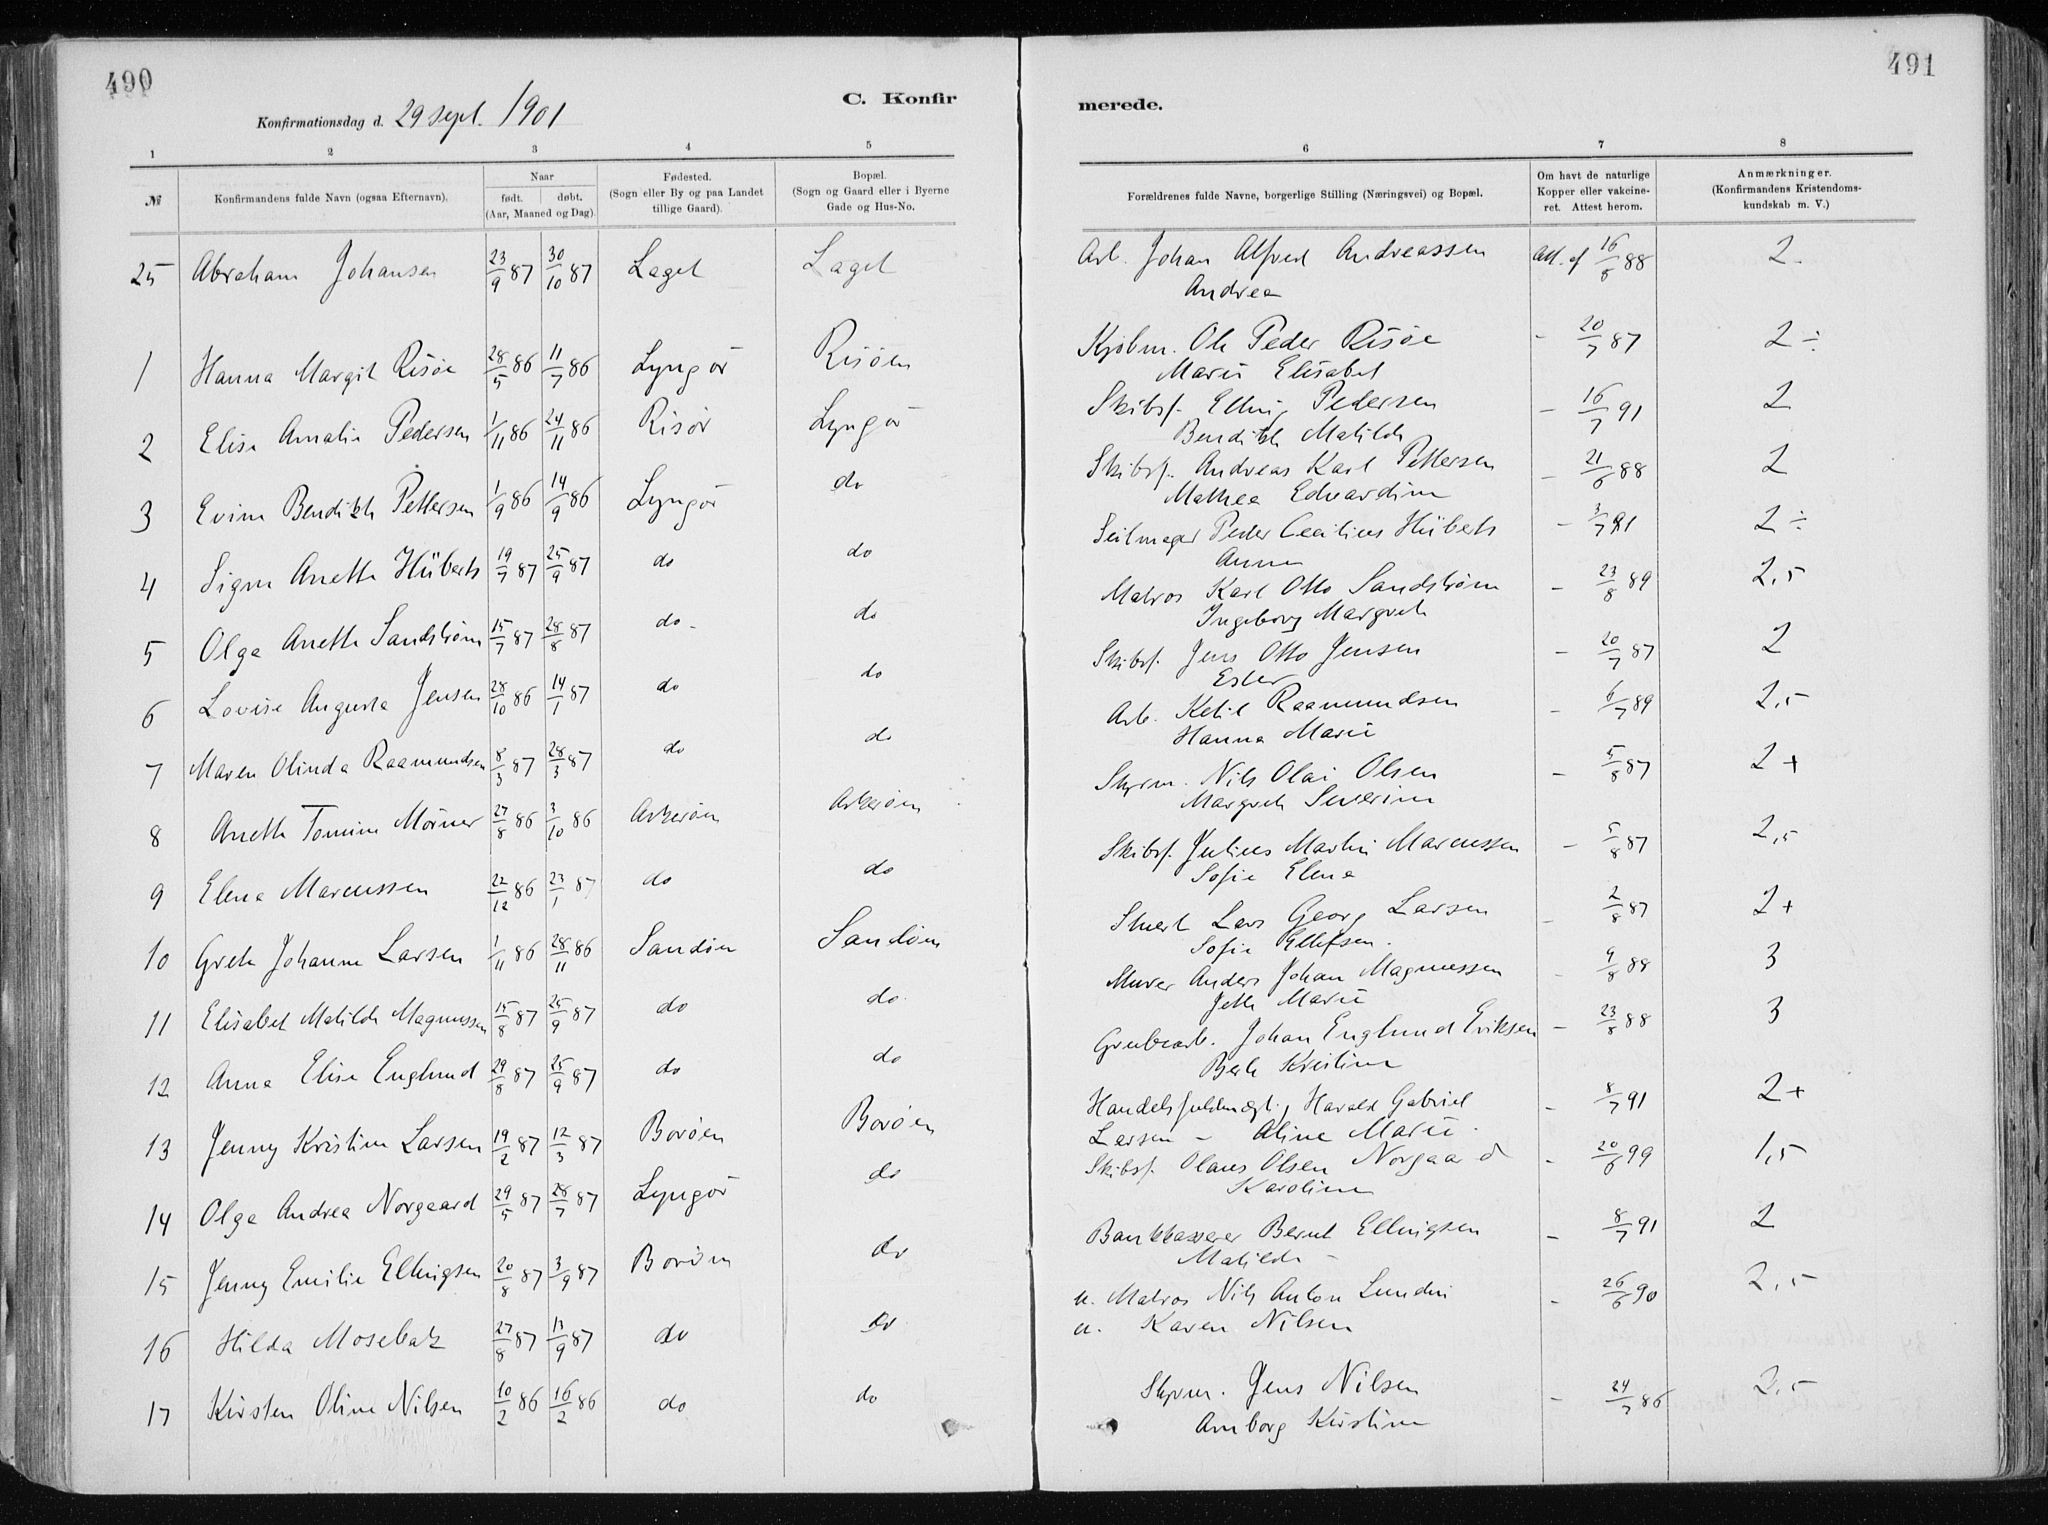 490
C. Konfir
Konfirmationsdag d. 29 sept. 1901
1 2 3 4 5
№ Konfirmandens fulde Navn (ogsaa Efternavn). Naar født. døbt. (Aar, Maaned og Dag). Fødested. (Sogn eller By og paa Landet tillige Gaard). Bopæl. (Sogn og Gaard eller i Byerne Gade og Hus-No.
25 Abraham Johansen 23/9 87 30/10 87 Laget Laget
1 Hanna Margit Risöe 28/5 86 11/7 86 Lyngör Risöen
2 Elise Amalie Pedersen 1/11 86 24/11 86 Risör Lyngör
3 Evine Bendikte Pettersen 1/9 86 14/9 86 Lyngör do
4 Signe Anette Hüberts 19/7 87 25/9 87 do do
5 Olga Anette Sandström 15/7 87 28/8 87 do do
6 Lovise Augusta Jensen 28/10 86 14/1 87 do do
7 Maren Olinda Raamundsen 8/3 87 28/3 87 do do
8 Anette Tomine Mörner 27/8 86 3/10 86 Askeröen Askeröen
9 Elena Marcussen 22/12 86 23/1 87 do do
10 Grete Johanne Larsen 1/11 86 28/11 86 Sandöen Sandöen
11 Elisabet Matilde Magnussen 15/8 87 25/9 87 do do
12 Anna Elise Englund 29/8 87 25/9 87 do do
13 Jenny Kristine Larsen 19/2 87 12/3 87 Boröen Boröen
14 Olga Andrea Norgaard 29/5 87 28/7 87 Lyngör do
15 Jenny Emilie Ellingsen 20/8 87 3/9 87 Boröen do
16 Hilda Mosebak 27/8 87 11/9 87 do do
17 Kirsten Oline Nilsen 10/2 86 16/2 86 do do
491
merede.
6 7 8
Forældrenes fulde Navne, borgerlige Stilling (Næringsvei) og Bopæl. Om havt de naturlige Kopper eller vakcineret. Attest herom. Anmærkninger. (Konfirmandens Kristendomskundskab m. V.)
Arb. Johan Alfred Andreassen Att. af 16/8 88 2
Andrea
Kjöbm. Ole Peder Risöe - 20/7 87 2 ÷
Marie Elisabet
Skibsf. Elling Pedersen - 16/7 91 2
Bendikte Matilde
Skibsf. Andreas Karl Pettersen - 21/6 88 2
Mathea Edvardine
Seilmager Peder Cecilius Hüberts - 3/7 91 2 ÷
Anne
Matros Karl Otto Sandström - 23/8 89 2,5
Ingeborg Margrete
Skibsf. Jens Otto Jensen - 20/7 87 2
Ester
Arb. Ketil Raamundsen - 6/7 89 2,5
Hanna Marie
Styrm. Nils Olai Olsen - 5/8 87 2 +
Margrete Severine
Skibsf. Julius Martin Marcussen - 5/8 87 2,5
Sofie Elene
Stuert Lars Georg Larsen - 2/8 87 2 +
Sofie Ellefsen.
Murer Anders Johan Magnussen - 9/8 88 3
Jette Marie
Grubearb. Johan Englund Eriksen - 23/8 88 3
Berte Kristine
Handelsfuldmægt., Harald Gabriel - 8/7 91 2 +
Larsen - Aline Marie.
Skibsf. Olaus Olsen Norgaard - 20/6 99 1,5
Karoline
Bankkasserer Bernt Ellingsen - 8/7 91 2
Matilde -
u. Matros Nils Anton Lundin - 26/6 90 2,5
u. Karen Nilsen
Styrm. Jens Nilsen - 24/7 86 2,5
Amborg Kirstine